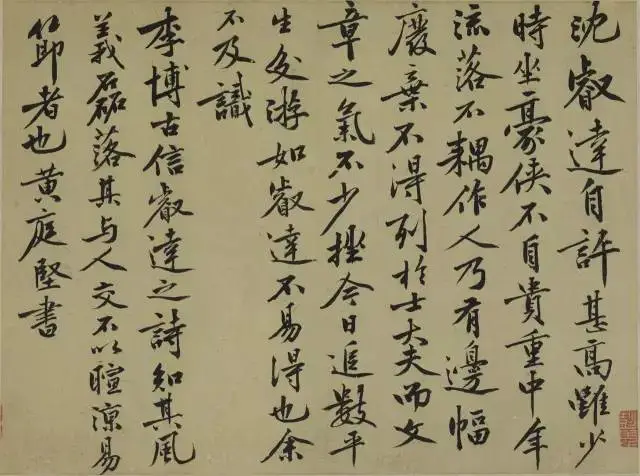 沈叡達自評甚高雖少
時坐豪俠不自貴重中年
流落不耦作人乃有邊幅
廢棄不得列於士大夫而文
章之氣不少挫今日追數平
生交游如叡達不易得也余
不及識
李博古信叡達之詩知其風
義磊落其与人交不以暄涼易
節者也黄庭堅書